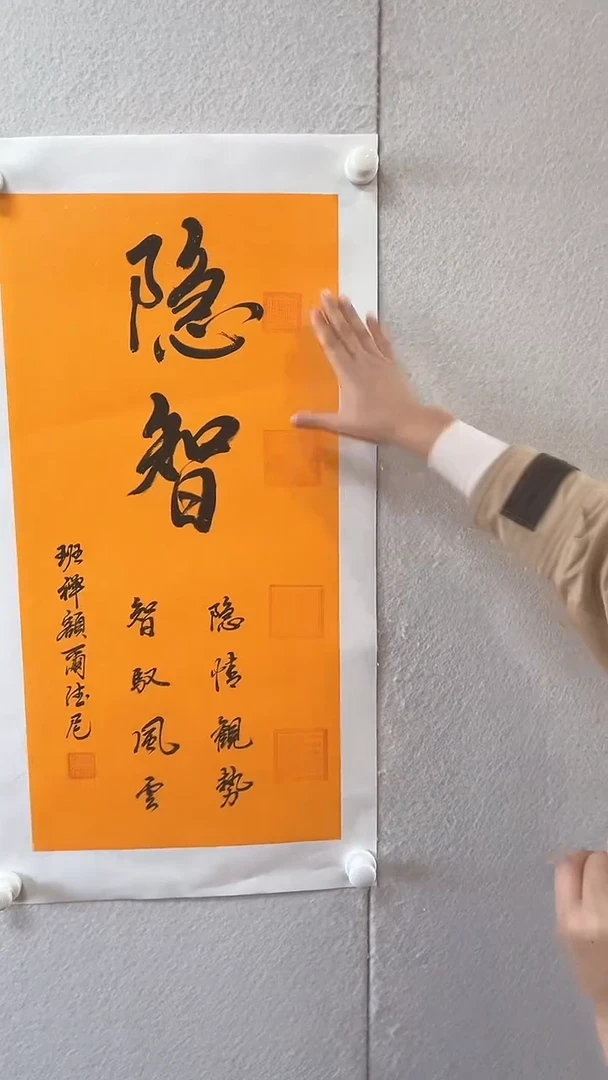 隐智
隐情觀勢
智馭風雲
班禅額爾德尼